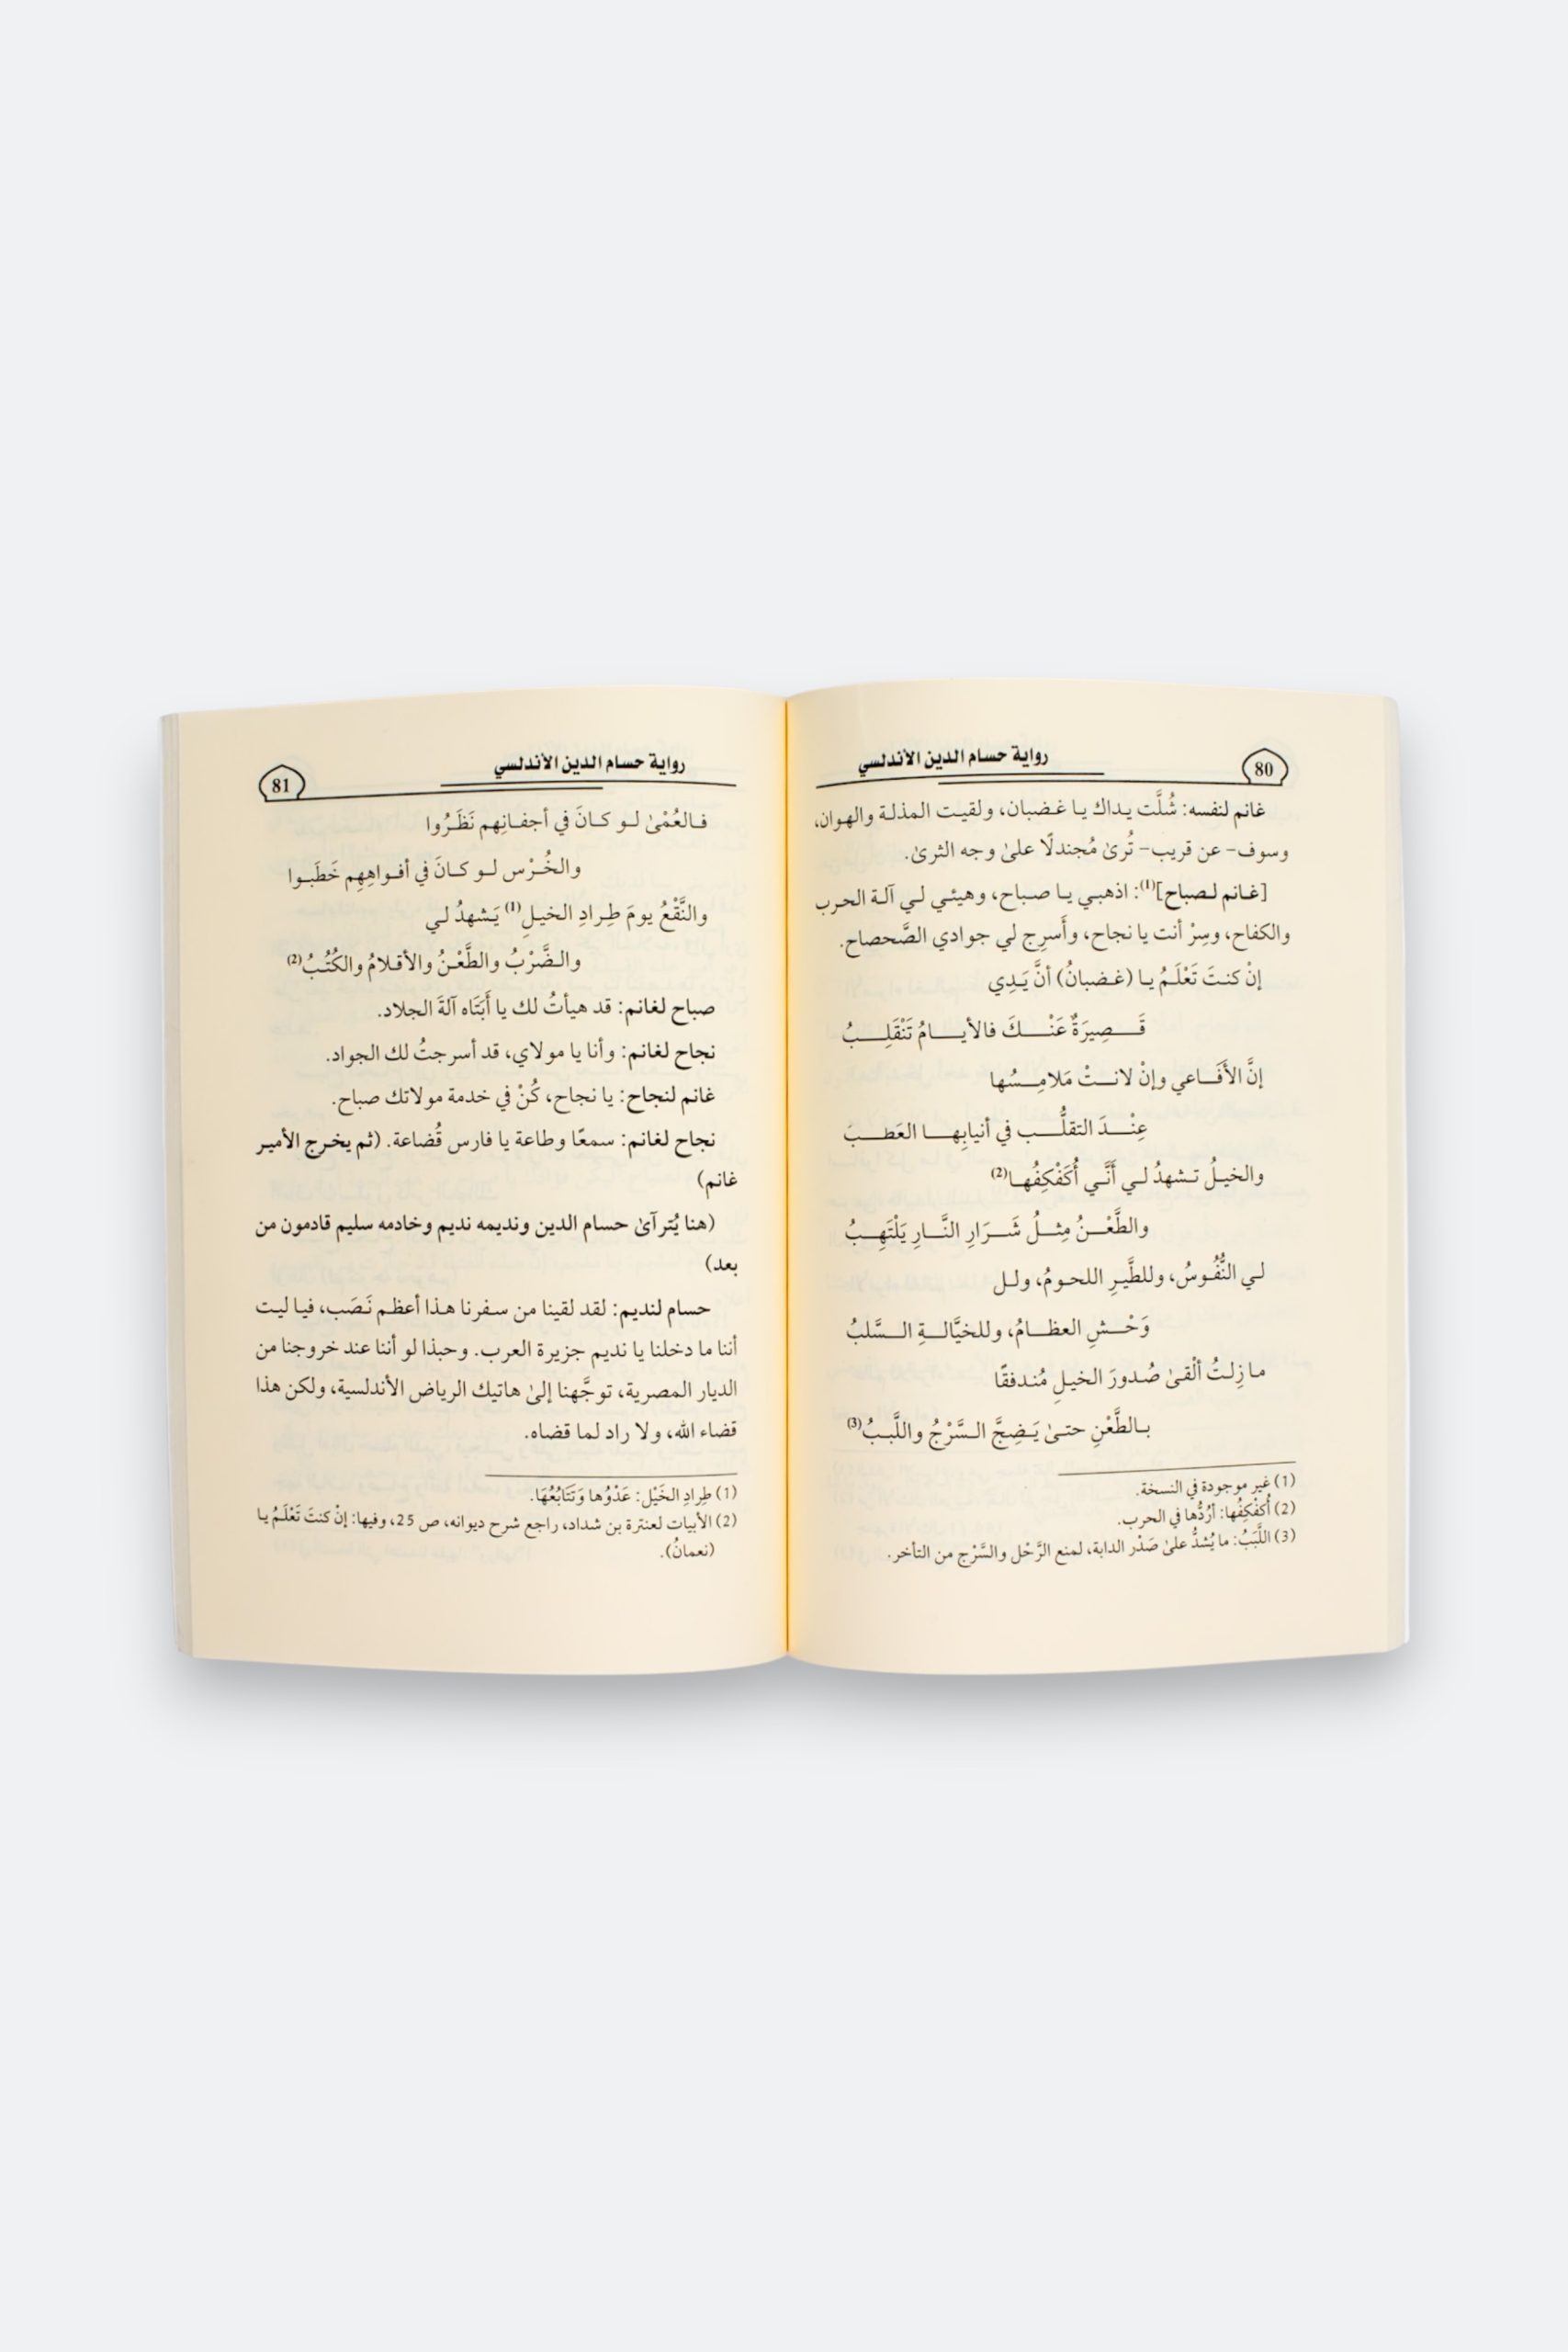 80
رواية حسام الدين الأندلسي
غانم لنفسه: شُلَّت يداك يا غضبان، ولقيت المذلة والهوان،
وسوف- عن قريب- تُرىٰ مُجندلًا علىٰ وجه الثرىٰ.
[غانم لصباح](1): اذهبي يا صباح، وهيئي لي آلة الحرب
والكفاح، وسِرْ أنت يا نجاح، وأَسرِج لي جوادي الصَّحصاح.
إنْ كنتَ تَعْلَمُ يا (غضبانُ) أنَّ يَدِي
قَصِيرَةٌ عَنْكَ فالأيامُ تَنْقَلِبُ
إنَّ الأَفَاعي وإنْ لانتْ مَلامِسُها
عِنْدَ التقلُّب في أنيابِها العَطبَ
والخيلُ تشهدُ لي أَنَّي أُكَفْكِفُها(2)
والطَّعْنُ مِثلُ شَرَارِ النَّارِ يَلْتَهِبُ
لي النُّفُوسُ، وللطَّيرِ اللحومُ، ولل
وَحْشِ العظامُ، وللخيَّالةِ السَّلبُ
ما زِلتُ ألْقىٰ صُدورَ الخيلِ مُندفقًا
بالطَّعْنِ حتىٰ يَضِجَّ السَّرْجُ واللَّببُ(3)
(1) غير موجودة في النسخة.
(2) أُكفْكِفُها: أرُدُّها في الحرب.
(3) اللَّبَبُ: ما يُشدُّ علىٰ صَدْر الدابة، لمنع الرَّحْل والسَّرْج من التأخر.
رواية حسام الدين الأندلسي
81
فالعُمْىٰ لو كانَ في أجفانِهم نَظَرُوا
والخُرْس لو كانَ في أفواهِهِم خَطَبوا
والنَّقْعُ يومَ طِرادِ الخيلِ(1) يَشهدُ لي
والضَّرْبُ والطَّعْنُ والأقلامُ والكُتُبُ(2)
صباح لغانم: قد هيأتُ لك يا أَبَتَاه آلةَ الجلاد.
نجاح لغانم: وأنا يا مولاي، قد أسرجتُ لك الجواد.
غانم لنجاح: يا نجاح، كُنْ في خدمة مولاتك صباح.
نجاح لغانم: سمعًا وطاعة يا فارس قُضاعة. (ثم يخرج الأمير
غانم)
(هنا يُترآىٰ حسام الدين ونديمه نديم وخادمه سليم قادمون من
بعد)
حسام لنديم: لقد لقينا من سفرنا هذا أعظم نَصَب، فيا ليت
أننا ما دخلنا يا نديم جزيرة العرب. وحبذا لو أننا عند خروجنا من
الديار المصرية، توجَّهنا إلىٰ هاتيك الرياض الأندلسية، ولكن هذا
قضاء الله، ولا راد لما قضاه.
(1) طِرادِ الخَيْل: عَدْوُها وَتَتَابُعُهَا.
(2) الأبيات لعنترة بن شداد، راجع شرح ديوانه، ص 25، وفيها: إنْ كنتَ تَعْلَمُ يا
(نعمانُ).